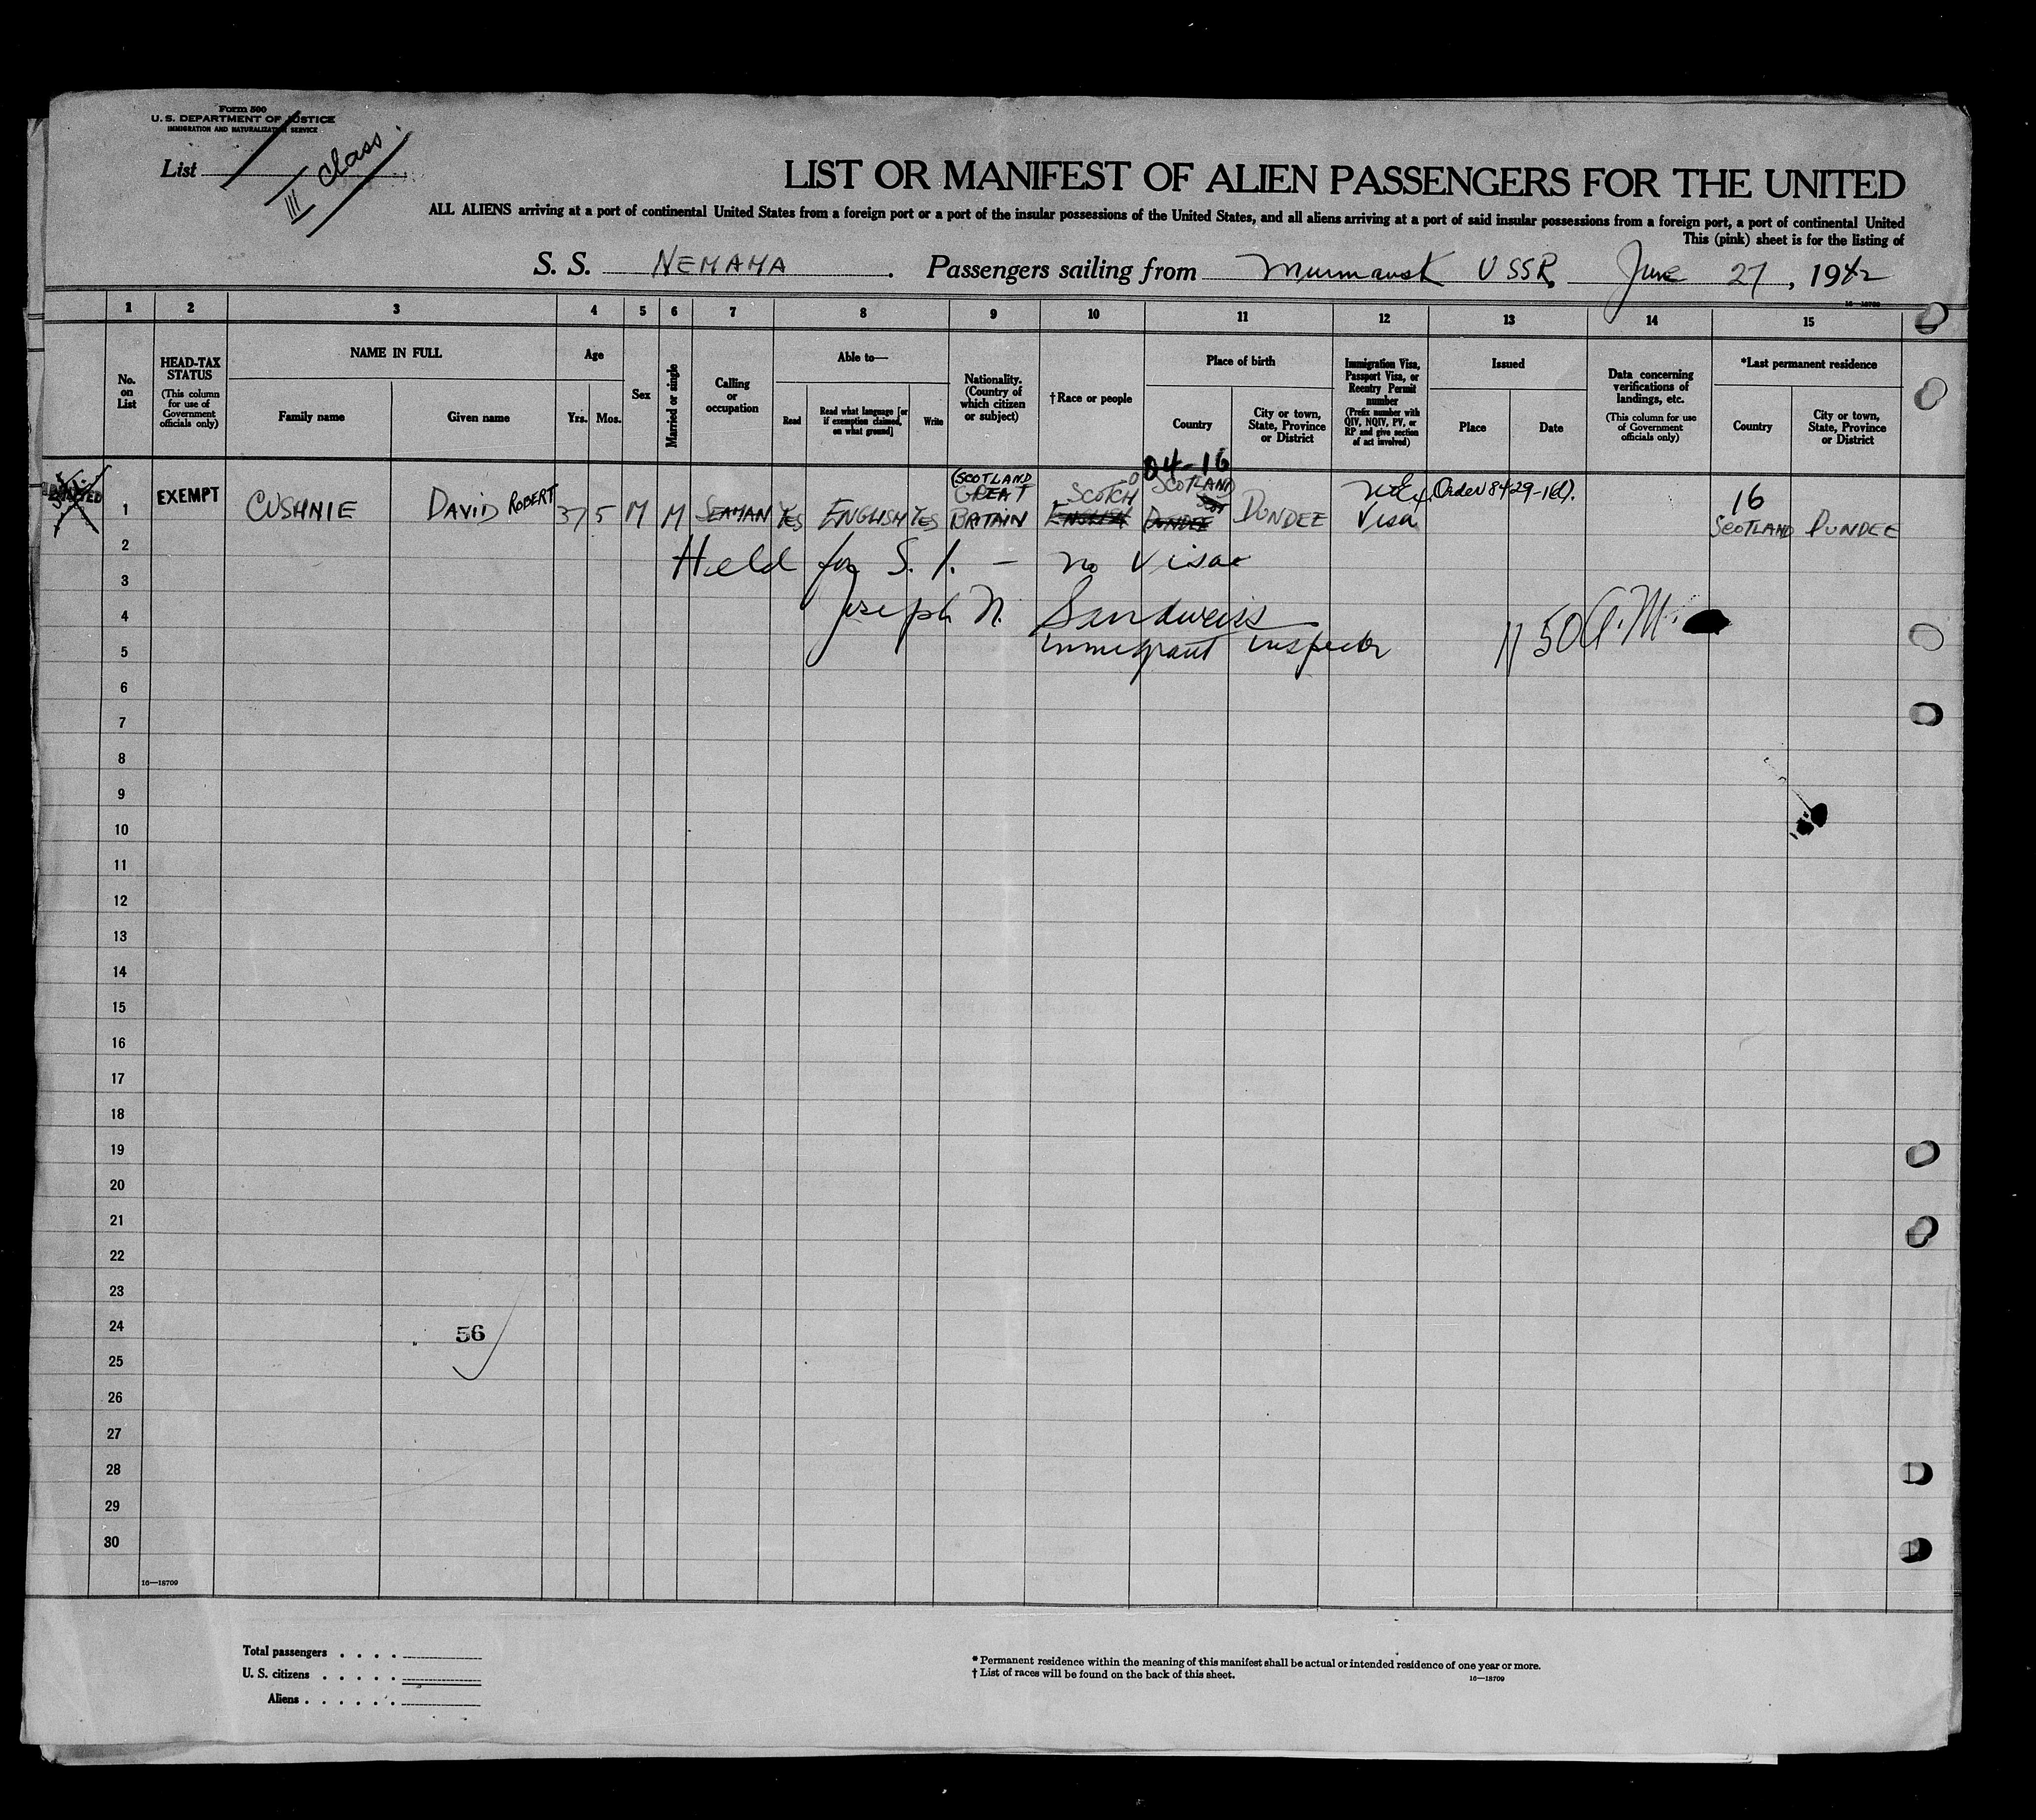 Form 500
U. S. DEPARTMENT OF JUSTICE
IMMIGRATION AND NATURALIZATION SERVICE
List
III class.
LIST OR MANIFEST OF ALIEN PASSENGERS FOR THE UNITED
ALL ALIENS arriving at a port of continental United States from a foreign port or a port of the insular possessions of the United States, and all aliens arriving at a port of said insular possessions from a foreign port, a port of continental United
This (pink) sheet is for the listing of
S. S. NEMAHA . Passengers sailing from Murmansk USSR, June 27, 1942
16—18709
1 2 3 4 5 6 7 8 9 10 11 12 13 14 15
No. on List
HEAD-TAX STATUS
(This column for use of Government officials only)
NAME IN FULL
Family name
Given name
Age
Yrs. Mos.
Sex
Married or single
Calling or occupation
Able to—
Read
Read what language [or if exemption claimed, on what ground]
Write
Nationality. (Country of which citizen or subject)
†Race or people
Place of birth
Country
City or town, State, Province or District
Immigration Visa, Passport Visa, or Reentry Permit number
(Prefix number with QIV, NQIV, PV, or RP and give section of act involved)
Issued
Place
Date
Data concerning verifications of landings, etc.
(This column for use of Government officials only)
*Last permanent residence
Country
City or town, State, Province or District
04-16
(SCOTLAND SCOTCH SCOTLAND
ADMITTED 1 EXEMPT CUSHNIE DAVID ROBERT 37 5 M M SEAMAN YES ENGLISH YES GREAT BRITAIN ENGLISH DUNDEE DUNDEE Visa Order 8429-1(d). 16 SCOTLAND DUNDEE
2 Held for S. I. - no visa
3
4 Joseph N. Sandweiss
5 Immigrant Inspector 11 50 A.M.
6
7
8
9
10
11
12
13
14
15
16
17
18
19
20
21
22
23
24 56
25
26
27
28
29
30
16—18709
Total passengers . . . .
U. S. citizens . . . . .
Aliens . . . . . .
* Permanent residence within the meaning of this manifest shall be actual or intended residence of one year or more.
† List of races will be found on the back of this sheet.
16—18709